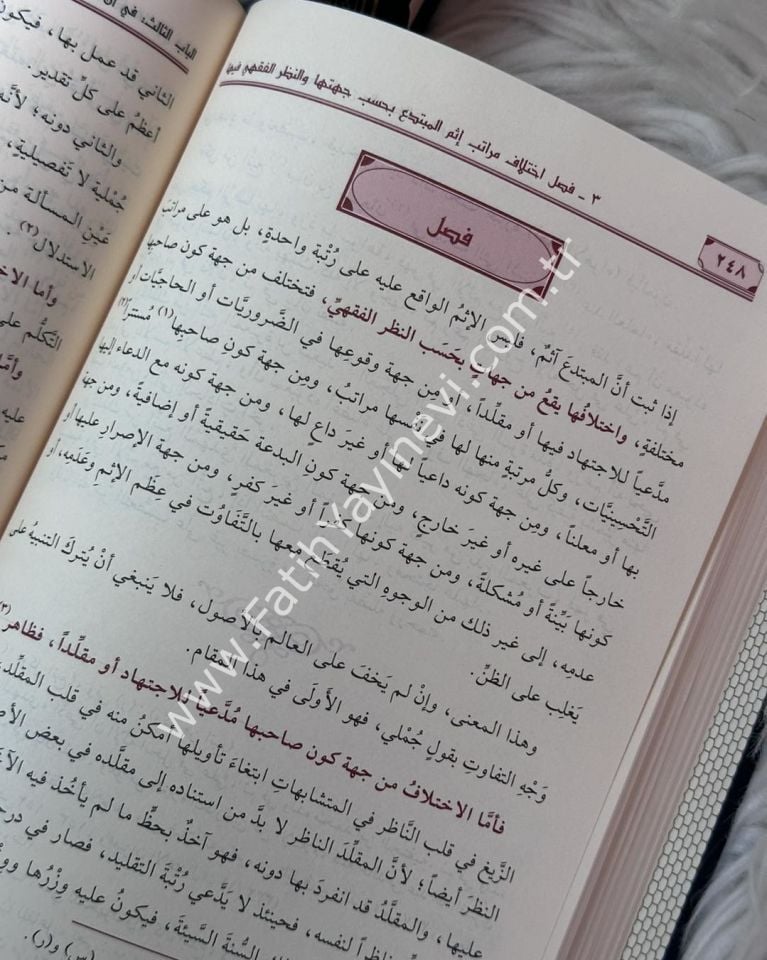 ٣ - فصل اختلاف مراتب إثم المبتدع بحسب جهتها والنظر الفقهي فيها
٢٤٨
فصل
إذا ثبت أنَّ المبتدعَ آثمٌ، فليس الإثمُ الواقع عليه على رُتْبة واحدةٍ، بل هو على مراتبَ
مختلفةٍ، واختلافُها يقعُ من جهاتٍ بحَسَب النظر الفقهيِّ، فتختلف من جهة كون صاحبها
مدَّعياً للاجتهاد فيها أو مقلِّداً، أو من جهة وقوعِها في الضَّروريَّات أو الحاجيَّات أو
التَّحْسينيَّات، وكلُّ مرتبةٍ منها لها في نفسها مراتبُ، ومن جهة كونِ صاحبِها(١) مُستتراً(٢)
بها أو معلناً، ومن جهة كونه داعياً لها أو غيرَ داعٍ لها، ومن جهة كونه مع الدعاء إليها
خارجاً على غيره أو غيرَ خارجٍ، ومن جهة كونِ البدعة حَقيقيةً أو إضافيةً، ومن جهة
كونها بَيِّنةً أو مُشكلةً، ومن جهة كونها كفراً أو غيرَ كفرٍ، ومن جهة الإصرارِ عليها أو
عدمِه، إلى غير ذلك من الوجوهِ التي يُقطَع معها بالتَّفَاوُت في عِظَم الإثم وعَدَمِه، أو
يَغلِب على الظنِّ.
وهذا المعنى، وإنْ لم يَخفَ على العالم بالأصول، فلا يَنبغي أنْ يُتركَ التنبيهُ على
وَجْهِ التفاوتِ بقولٍ جُمْلي، فهو الأَولَى في هذا المقام.
فأمَّا الاختلافُ من جهة كون صاحبها مُدَّعياً للاجتهاد أو مقلِّداً، فظاهر(٣)
الزَّيغ في قلب النَّاظر في المتشابهاتِ ابتغاءَ تأويلها أمكنُ منه في قلب المقلِّد،
النظرَ أيضاً؛ لأنَّ المقلِّدَ الناظر لا بدَّ من استناده إلى مقلَّده في بعض
عليها، والمقلَّدُ قد انفردَ بها دونه، فهو آخذٌ بحظِّ ما لم يأخُذ فيه
ناظراً لنفسه، فحينئذٍ لا يَدَّعي رُتْبةَ التقليد، فصار في
السُّنةَ السَّيئةَ، فيكونُ عليه وِزْرُها
(س) و(ر).
الباب الثالث: في أن
الثاني قد عمل بها، فيكون
أعظمُ على كلِّ تقدير
والثاني دونه؛ لأنَّه
جُمْلية لا تَفصيليةٍ،
عَيْنِ المسألة من
الاستدلال(٢).
وأما
التَّكلُّم على
وأمَّا
عليه
www.FatihYayinevi.com.tr